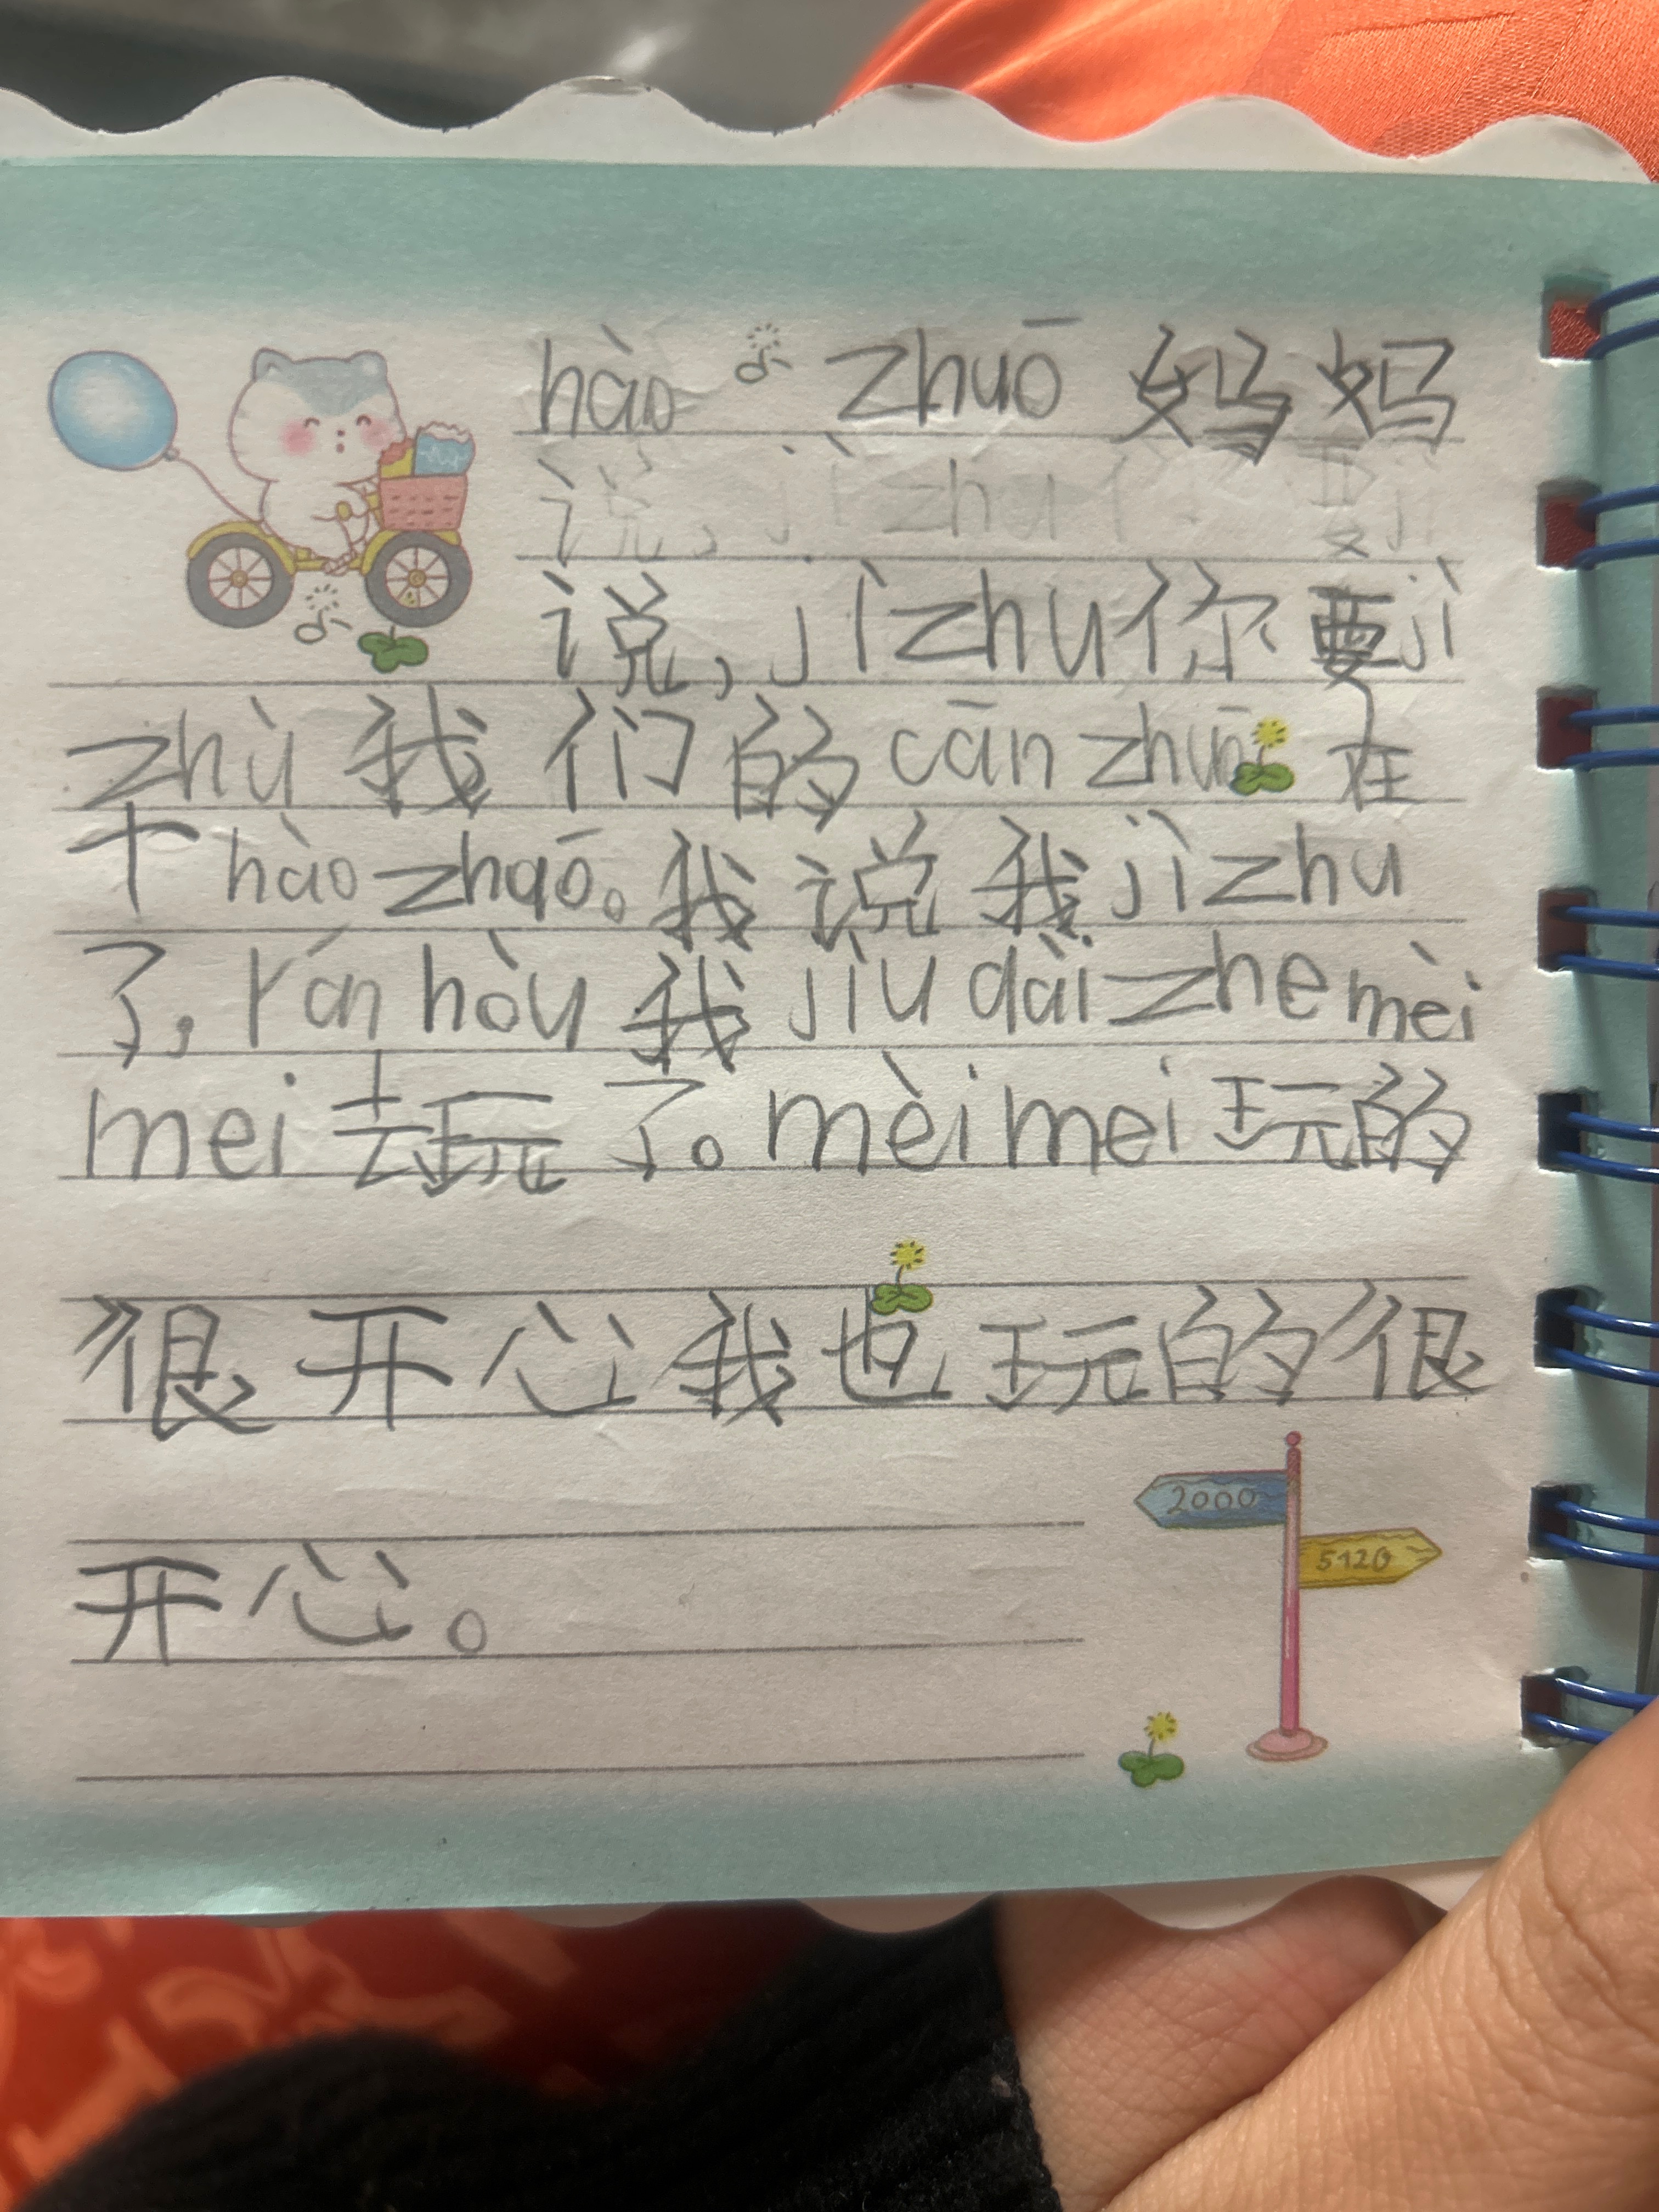 hào zhuō 妈妈
说, jì zhu 要ji
说, jì zhu 你要jì
zhù 我们的 cān zhuō 在
个 hào zhaō。我说我 jì zhu
了, rán hòu 我 jiù dài zhe mèi
mei 去玩了。mèi mei 玩的
很开心我也玩的很
2000
5120
开心。